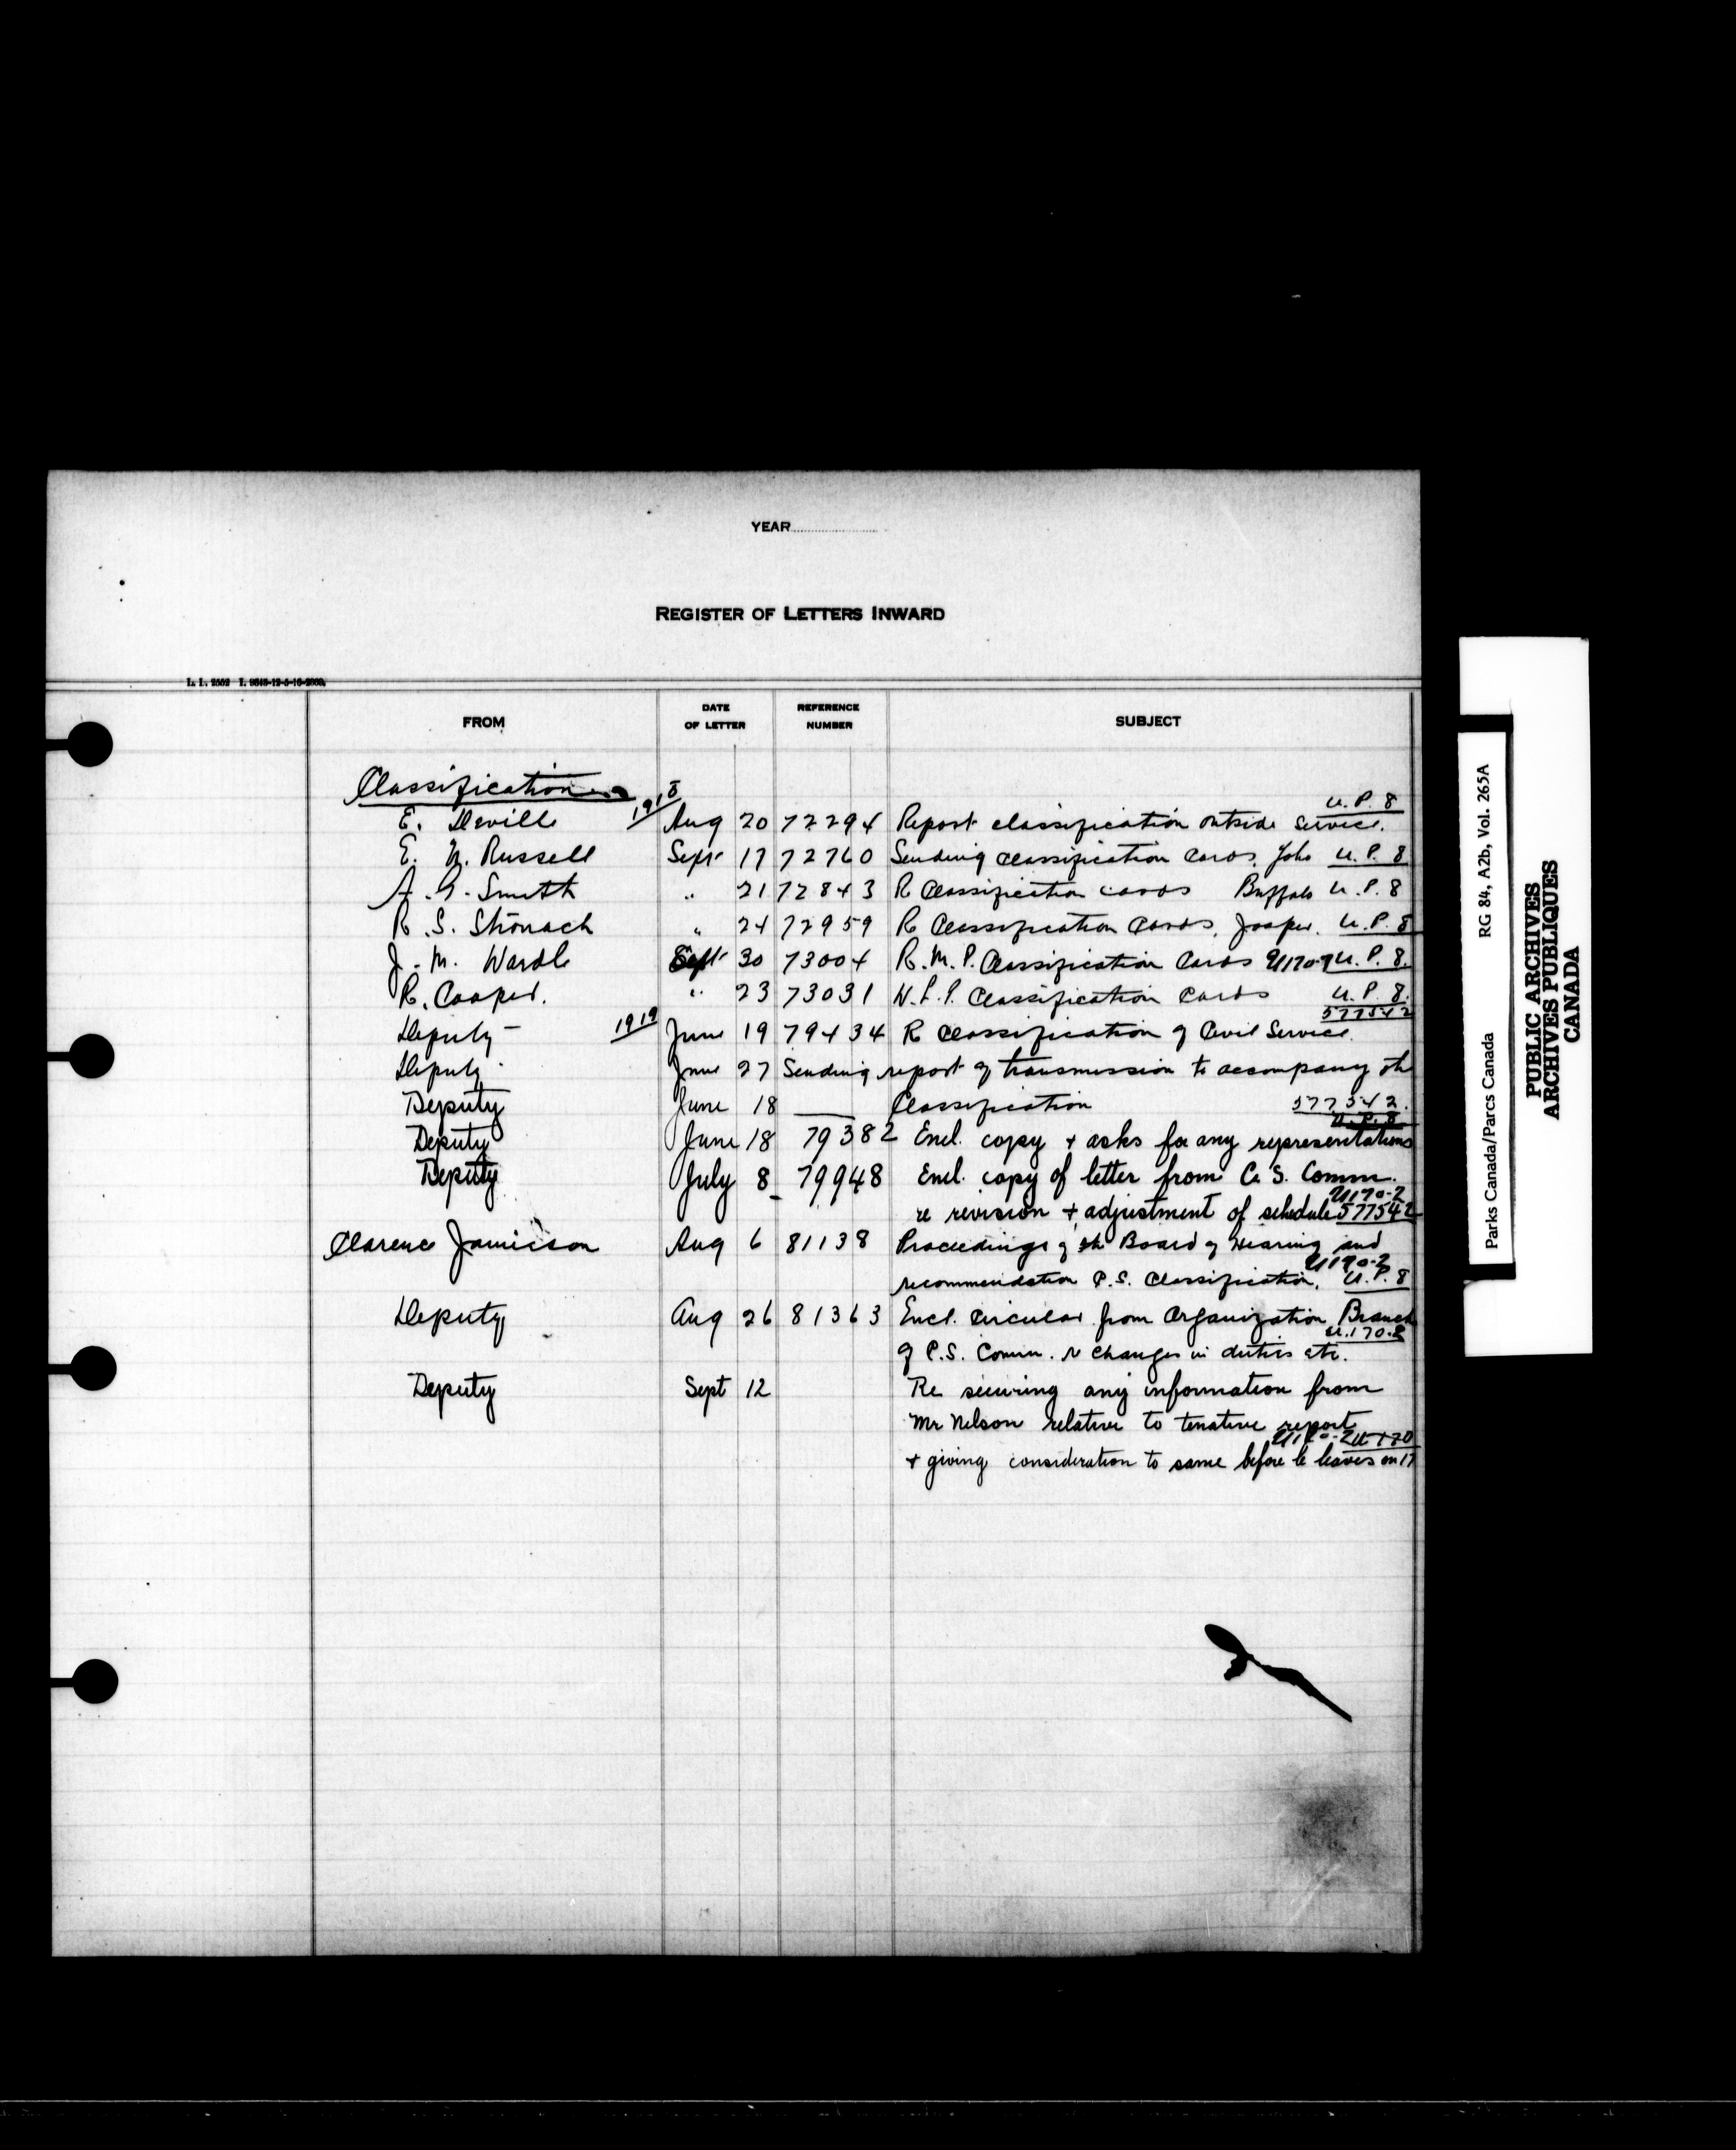 YEAR
REGISTER OF LETTERS INWARD
L. L. 2552
FROM DATE OF LETTER REFERENCE NUMBER SUBJECT
Classification
1918 U.P. 8
E. Deville Aug 20 72294 Report classification outside Service.
E. N. Russell Sept 17 72760 Sending classification cards, Yoho U.P. 8
A. G. Smith " 21 72843 R Classification cards Buffalo U.P. 8
R. S. Stronach " 24 72959 R Classification Cards, Jasper. U.P. 8
J. M. Wardle Sept 30 73004 R.M.P. Classification Cards U.P. 8.
R. Cooper. " 23 73031 Classification Cards U.P. 8.
577542
Deputy 1919 June 19 79434 R Classification of Civil Service.
Deputy June 27 Sending report of transmission to accompany the
Deputy June 18 — Classification 577542.
U.P. 8
Deputy June 18 79382 Encl. copy + asks for any representations
Deputy July 8 79948 Encl. copy of letter from C. S. Comm.
U170-2
re revision + adjustment of schedule 577542
Clarence Jamieson Aug 6 81138 Proceedings of the Board of Hearing and
U170-2
recommendation C.S. Classification. U.P. 8
Deputy Aug 26 81363 Encl. circular from Organization Branch
U.170-2
of C.S. Comm. re changes in duties etc.
Deputy Sept 12 Re securing any information from
Mr Nelson relative to tenative report
+ giving consideration to same before he leaves on 17
Parks Canada/Parcs Canada RG 84, A2b, Vol. 265A
PUBLIC ARCHIVES
ARCHIVES PUBLIQUES
CANADA